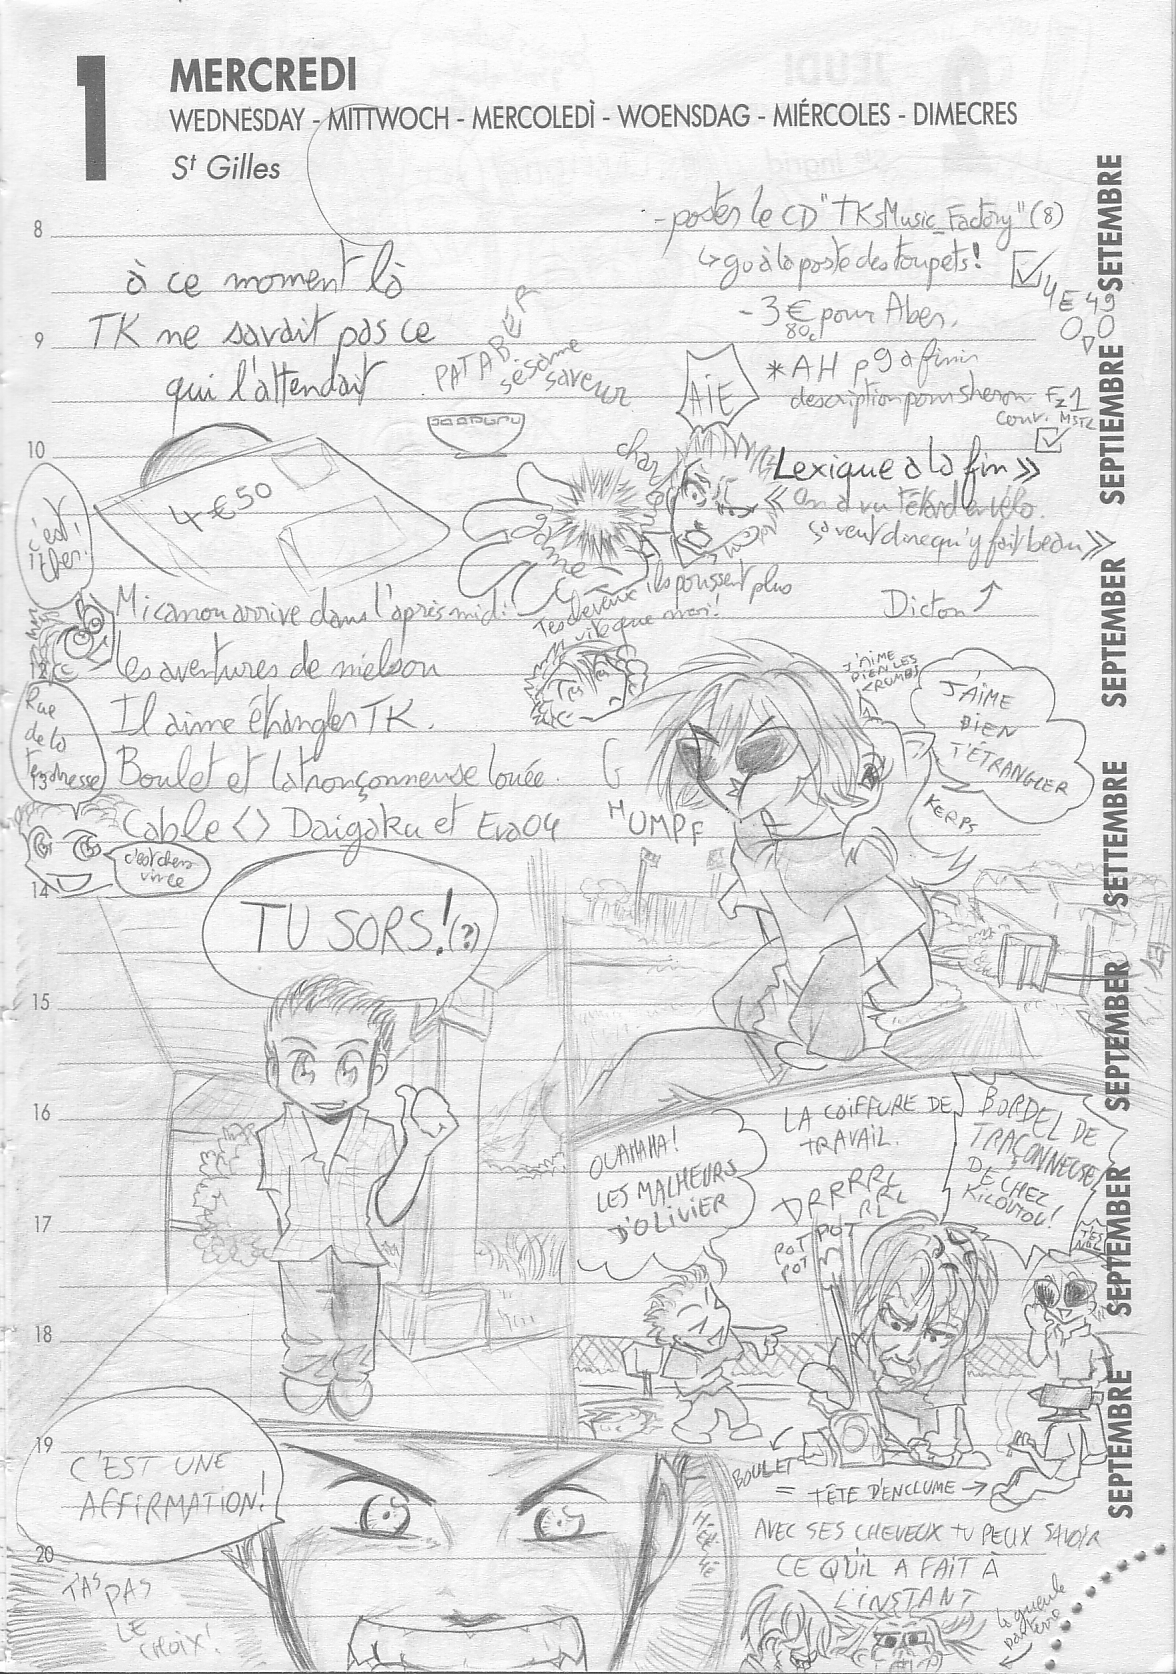 1
MERCREDI
WEDNESDAY - MITTWOCH - MERCOLEDÌ - WOENSDAG - MIÉRCOLES - DIMECRES
St Gilles
- poster le CD "TKsMusic_Factory" (8)
à la poste des toupets!
- 3€ pour Aber.
80c
4E 49
8
à ce moment là
9
TK ne savait pas ce
qui l'attendait
PATABER
sésame
saveur
AIE
* AH p9 a finir
description pour sheron
Fz1
Couv. MSTL
10
4€50
Lexique a la fin »
« On a vu Tétard en vélo.
ça veut dire qu'y fait beau »
Dicton
c'est
cher.
game
Tes cheveux ils poussent plus
vite que moi!
Micanou arrive dans l'après midi.
12
les aventures de nielson
Il aime étrangler TK.
Rue
de la
tendresse
13
Boulet et la tronçonneuse louée.
Cable <> Daigaku et Eva04
c'est chers
14
J'AIME
BIEN LES
J'AIME
BIEN
T'ÉTRANGLER
KERPS
HUMPF
TU SORS! (?)
15
16
17
18
OUAHAHA!
LES MALHEURS
D'OLIVIER
LA COIFFURE DE
TRAVAIL.
DRRRRL
RL
POT POT
POT POT
BORDEL DE
TRAÇONNEUSE
DE CHEZ
KILOUTOU!
T'ES
NUL
BOULET
= TÊTE D'ENCLUME →
19
C'EST UNE
AFFIRMATION!
20
T'AS PAS
LE
CHOIX!
HÉ HÉ HÉ
AVEC SES CHEVEUX TU PEUX SAVOIR
CE QU'IL A FAIT À
L'INSTANT
la gueule
par terre
SEPTEMBRE SEPTEMBER SEPTEMBER SETTEMBRE SEPTEMBER SEPTIEMBRE SETEMBRE